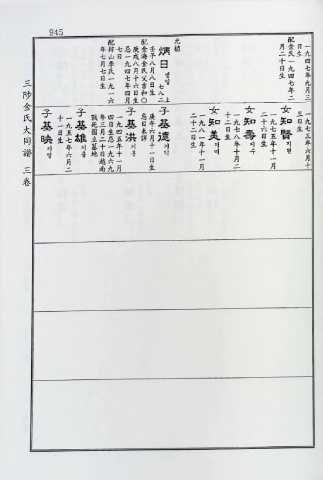 945
一九四七年九月三
日生
配金氏一九四七年二
月二十日生
一九七三年六月十
三日生
女知賢 지현
一九七五年十一月
二十六日生
女知壽 지수
一九七七年十月二
十二日生
女知美 지미
一九八一年十一月
二十二日生
元植
炳日 병일 七八二 土
壬午八月八日生
庚戌八月十六日生
配金海金氏父吉和
忌一九四七年七月
七日
配 山李氏一九一六
年七月七日生
子基德 기덕
庚午六月十一日生
忌日未詳
子基洪 기홍
一九四五年十一月
四日生忌一九六九
年三月二十日越南
戰死國立墓地
子基雄 기웅
一九五七年六月二
十一日生
子基映 기영
三陟金氏大同譜 三卷